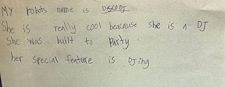 My robots name is DISCODJ
She is really cool beacause she is a DJ
She was built to Party
her special feature is DJing